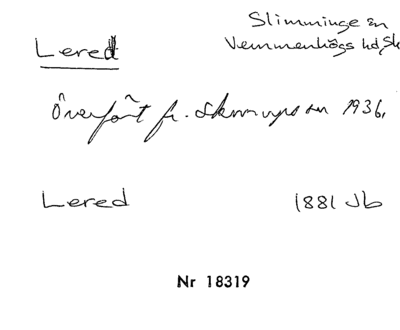 Slimminge sn
Lered Vemmenhögs hd, Sk
Överfört fr. Skurups sn 1936.
Lered 1881 Jb
Nr 18319